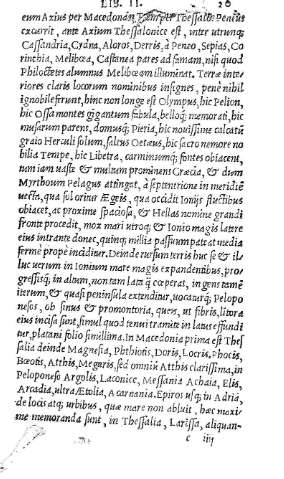 LIB. II. 20
eum Axius per Macedonas, Peneus
excurrit, ante Axium Thessalonice est, inter utrunq;
Cassandria, Cydna, Aloros, Derris, à Peneo, Sepias, Co
rinthia, Melibœa, Castanea pares ad famam, nisi quod
Philoctetes alumnus Melibœam illuminat. Terræ inte
riores claris locorum nominibus insignes, penè nihil
ignobile ferunt, hinc non longe est Olympus, hic Pelion,
hic Ossa montes gigantum fabula, belloq; memorati, hic
musarum parens, domusq; Pieria, hic nouissime calcatū
graio Herculi solum, saltus Oetæus, hic sacro nemore no
bilia Tempe, hic Libetra, carminumq; fontes obiacent,
tum iam uastè & multum prominens Græcia, & dum
Myrthoum Pelagus attingat, à septentrione in meridiē
uecta, qua sol oritur Ægeis, qua occidit Ioniis fluctibus
obiacet, ac proxime spaciosa, & Hellas nomine grandi
fronte procedit, mox mari utroq; & Ionio magis latere
eius intrante donec, quinq; millia passuum pateat media
fermè propè inciditur. Deinde rursum terris huc se & il
luc uerum in Ionium mare magis expandentibus, pro/
gressisq; in altum, non tam lata q̄ cœperat, ingens tamē
iterum, & quasi peninsula extenditur, uocaturq; Pelopo
nesos, ob sinus & promontoria, queis, ut fibris, litora
eius incisa sunt, simul quod tenui tramite in latus effundi
tur, platani folio simillima. In Macedonia prima est Thes
salia deinde Magnesia, Phthiotis, Doris, Locris, Phocis,
Bœotis, Atthis, Megaris, sed omniū Atthis clarissima, in
Peloponeso Argolis, Laconice, Messania Achaia, Elis,
Arcadia, ultra Ætolia, Acarnania. Epiros usq; in Adria,
de locis atq; urbibus, quæ mare non abluit, hæc maxi
me memoranda sunt, in Thessalia, Larissa, aliquan-
c iiij